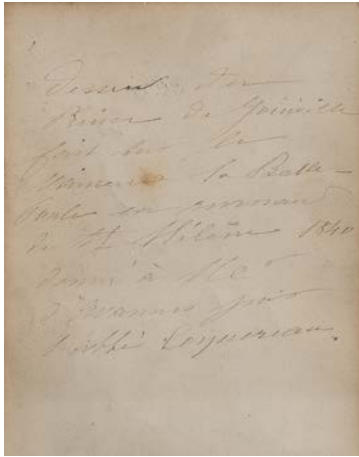 Dessin du
Prince de Joinville
fait sur le
vaisseau la Belle-
Poule en
de St Hélène 1840
donné à
par
l'abbé Coquereau.